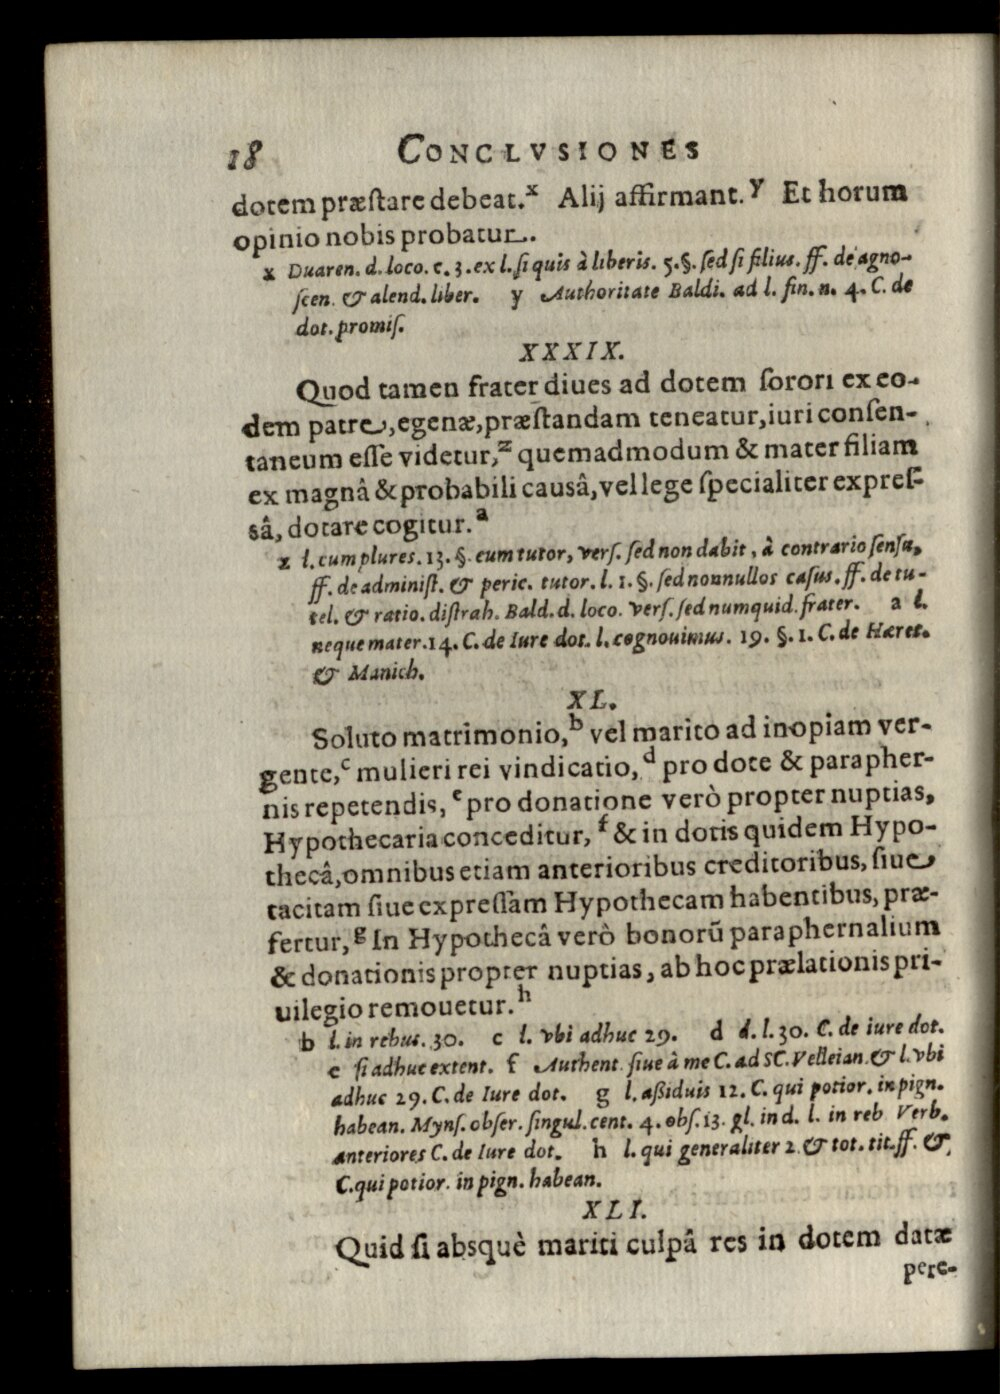 18 CONCLVSIONES
dotem præſtare debeat.ˣ Alij affirmant.ʸ Et horum
opinio nobis probatur.
x Duaren. d. loco. c. 3. ex l. ſi quis à liberis. 5. §. ſed ſi filius. ff. de agno-
ſcen. & alend. liber. y Authoritate Baldi. ad l. fin. n. 4. C. de
dot. promiſ.
XXXIX.
Quod tamen frater diues ad dotem ſorori ex eo-
dem patre, egenæ, præſtandam teneatur, iuri conſen-
taneum eſſe videtur,ᶻ quemadmodum & mater filiam
ex magnâ & probabili causâ, vel lege ſpecialiter expreſ-
sâ, dotare cogitur.ᵃ
z l. cum plures. 13. §. cum tutor, verſ. ſed non dabit, à contrario ſenſu,
ff. de adminiſt. & peric. tutor. l. 1. §. ſed nonnullos caſus. ff. de tu-
tel. & ratio. diſtrah. Bald. d. loco. verſ. ſed numquid. frater. a l.
neque mater. 14. C. de Iure dot. l. cognouimus. 19. §. 1. C. de Hæret.
& Manich.
XL.
Soluto matrimonio,ᵇ vel marito ad inopiam ver-
gente,ᶜ mulieri rei vindicatio,ᵈ pro dote & parapher-
nis repetendis,ᵉ pro donatione verò propter nuptias,
Hypothecaria conceditur,ᶠ & in dotis quidem Hypo-
thecâ, omnibus etiam anterioribus creditoribus, ſiue
tacitam ſiue expreſſam Hypothecam habentibus, præ-
fertur,ᵍ In Hypothecâ verò bonorũ paraphernalium
& donationis propter nuptias, ab hoc prælationis pri-
uilegio remouetur.ʰ
b l. in rebus. 30. c l. vbi adhuc 29. d d. l. 30. C. de iure dot.
e ſi adhuc extent. f Authent. ſiue à me C. ad SC. Velleian. & l. vbi
adhuc 29. C. de Iure dot. g l. aßiduis 12. C. qui potior. in pign.
habean. Mynſ. obſer. ſingul. cent. 4. obſ. 13. gl. in d. l. in reb Verb.
anteriores C. de Iure dot. h l. qui generaliter 2. & tot. tit. ff. &
C. qui potior. in pign. habean.
XLI.
Quid ſi absquè mariti culpâ res in dotem datæ
pere-